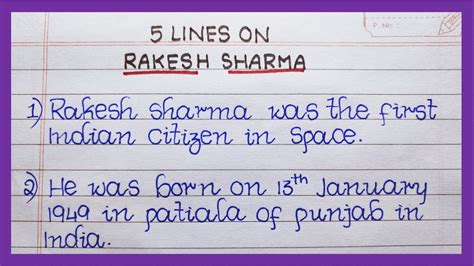 P. No.:
5 LINES ON
RAKESH SHARMA
1) Rakesh Sharma was the first
Indian Citizen in Space.
2) He was born on 13th January
1949 in patiala of punjab in
India.